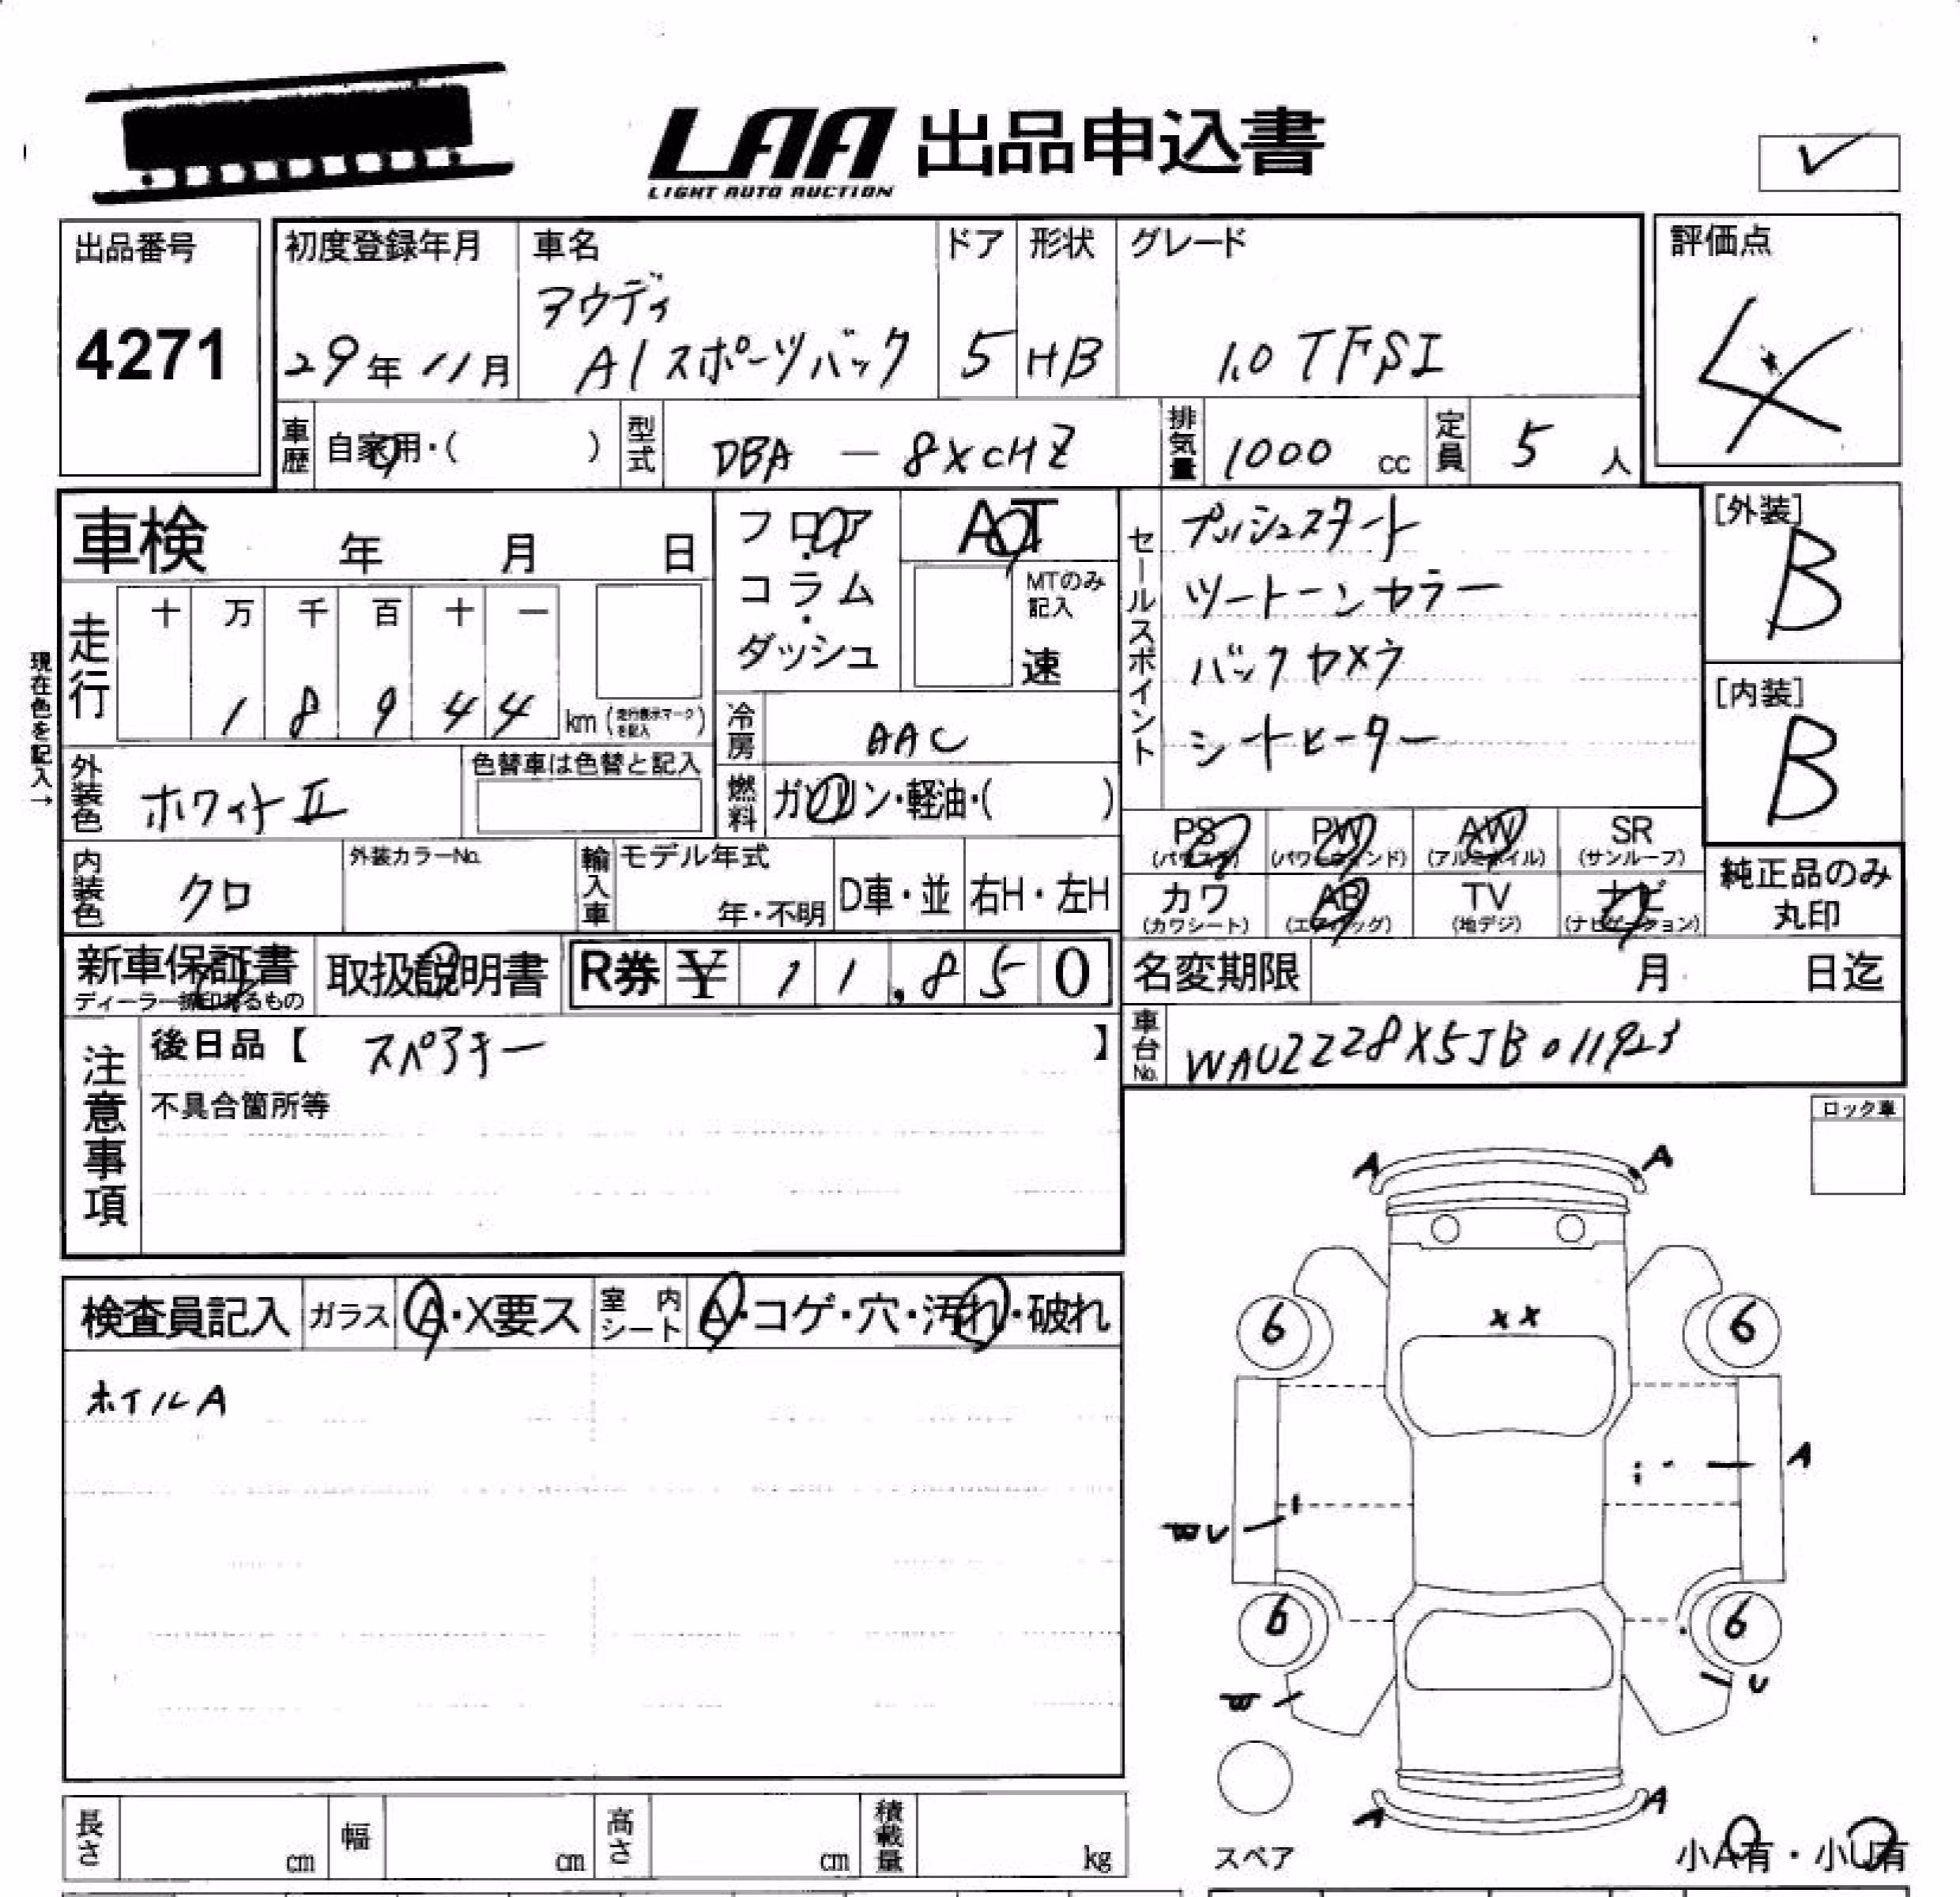 LAA 出品申込書
LIGHT AUTO AUCTION
✓
出品番号
4271
初度登録年月
29年 11月
車名
アウディ
A1スポーツバック
ドア
5
形状
HB
グレード
1.0 TFSI
評価点
4
車歴
自家用・( )
型式
DBA - 8XCHZ
排気量
1000 cc
定員
5 人
車検 年 月 日
フロア・コラム・ダッシュ
AT
MTのみ記入
速
セールスポイント
プッシュスタート
ツートーンカラー
バックカメラ
シートヒーター
[外装]
B
[内装]
B
現在色を記入→
走行
十 万 千 百 十 一
1 8 9 4 4 km (走行表示マークを記入)
冷房
AAC
外装色
ホワイトII
色替車は色替と記入
燃料
ガソリン・軽油・( )
PS (パワステ)
PW (パワーウィンド)
AW (アルミホイル)
SR (サンルーフ)
カワ (カワシート)
AB (エアバッグ)
TV (地デジ)
ナビ (ナビゲーション)
純正品のみ丸印
内装色
クロ
外装カラーNo.
輸入車
モデル年式
年・不明
D車・並
右H・左H
新車保証書
取扱説明書
R券 ¥ 11,850
名変期限 月 日迄
車台No.
WAUZZZ8X5JB011923
注意事項
後日品【 スペアキー 】
不具合箇所等
ロック車
A A
検査員記入
ガラス A・X要ス
室内シート A・コゲ・穴・汚れ・破れ
ホイルA
6 6
××
A
U
6 6
U
A A
スペア
小A有・小U有
長さ cm
幅 cm
高さ cm
積載量 kg